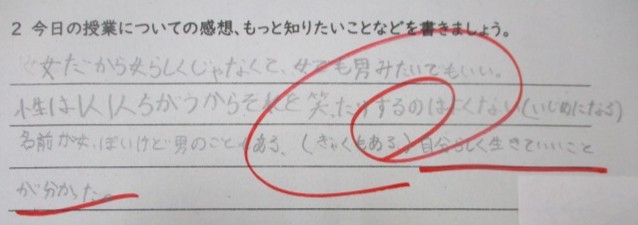 2 今日の授業についての感想、もっと知りたいことなどを書きましょう。
女だから女らしくじゃなくて、女でも男みたいでもいい。
小生は人1人ちがうからそれを笑ったりするのはよくない(いじめになる)
名前が女っぽいけど男のこともある、(ぎゃくもある)自分らしく生きていいこと
が分かった。